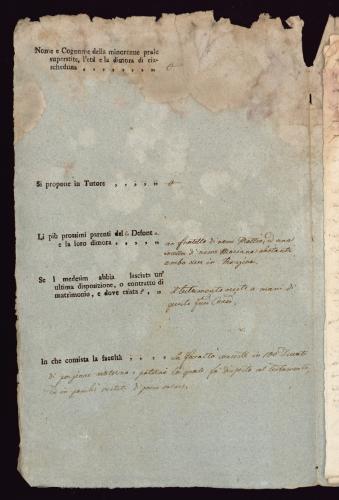 Nome e Cognome della minorenne prole
superstite, l'età e la dimora di cia-
scheduna
Si propone in Tutore
Li più prossimi parenti del Defonto
e la loro dimora un fratello di nome Matteo, ed una
sorella di nome Marianna abitante
ambo
Se i medesimi abbia lasciata un'
ultima disposizione, o contratto di
matrimonio, e dove esista? Il testamento esiste a mani di
questo
In che consista la facoltà La facoltà consiste in 100 Ducati
di porzione materna, e paterna la quale fu disposta col testamento,
ed in pochi vestiti di poco valore.